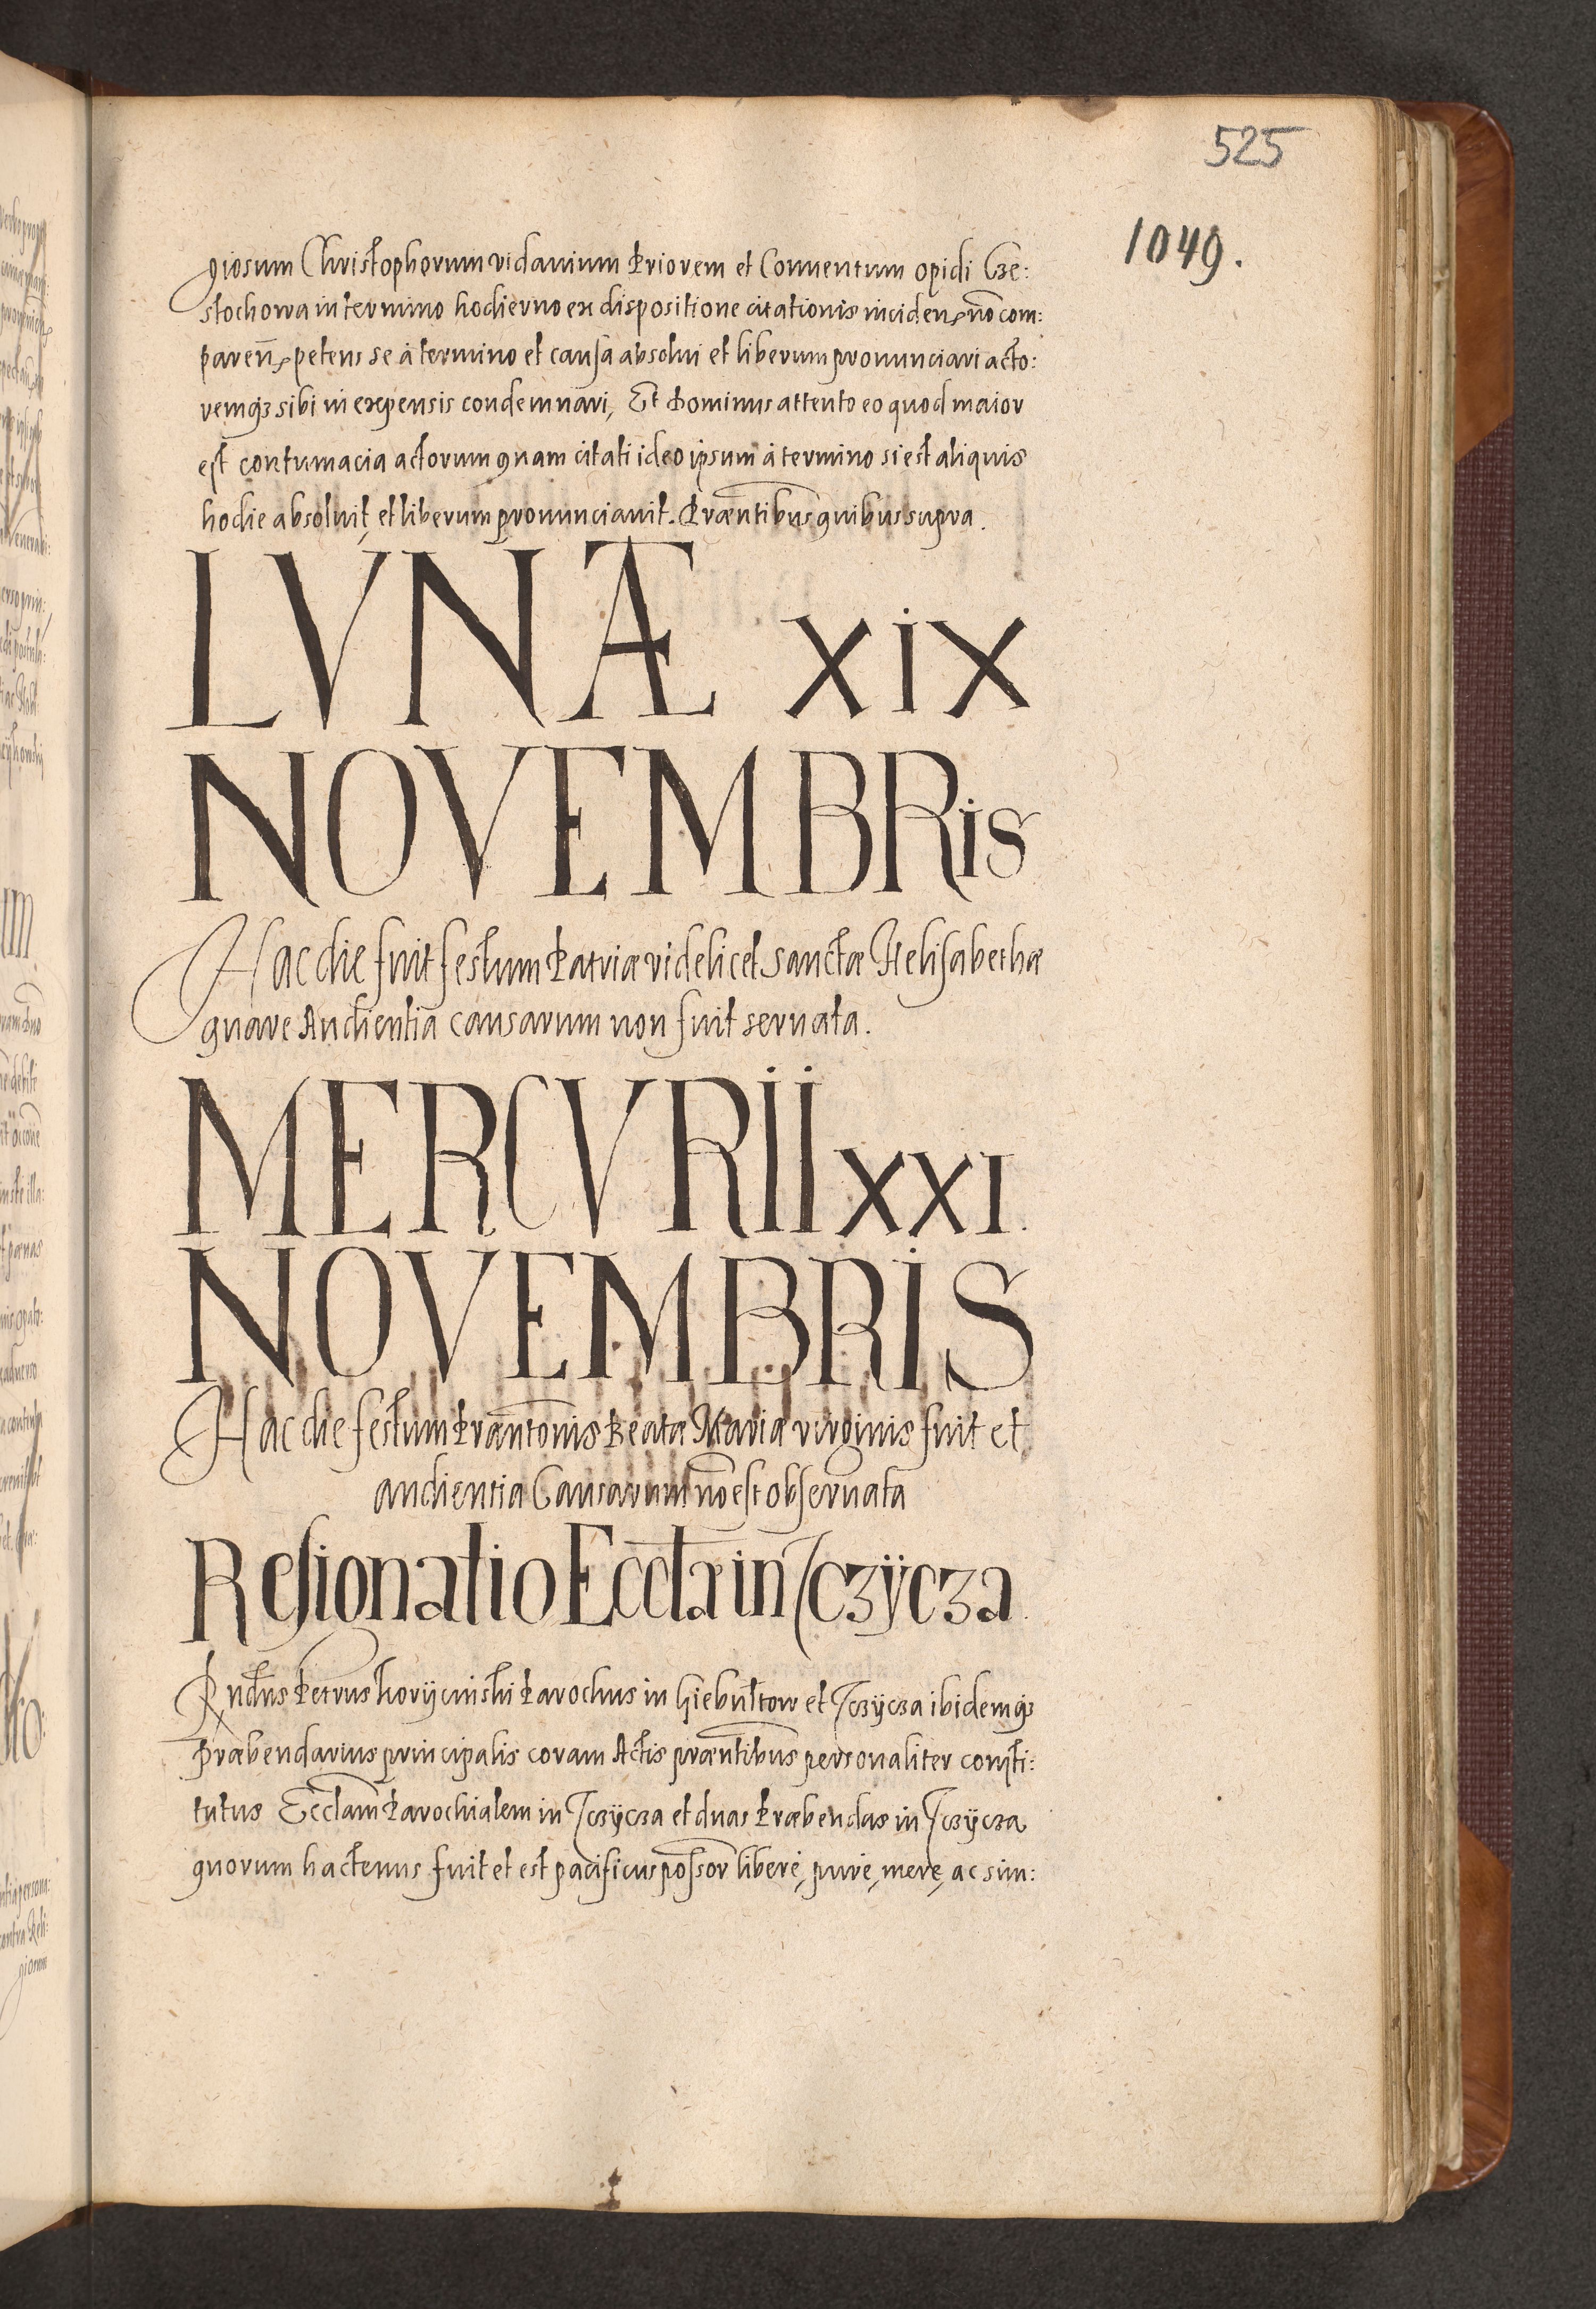 525
1049.
giosum Christophorum vidavium Priorem et Conventum opidi Cze:
stochowa in termino hodierno ex dispositione citationis inciden̄ nō com:
paren̄ petens se à termino et causa absolui et liberum pronunciari acto:
remqʒ sibi in expensis condemnari, Et Dominus attento eo quod maior
est contumacia actorum quam citati ideo ipsum à termino si est aliquis
hodie absoluit, et liberum pronunciauit. Præntibus quibus supra.
LVNÆ XiX
NOVEMBRis
Hac die fuit festum Patriæ videlicet Sanctæ Helisabethæ
quare Audientia causarum non fuit seruata.
MERCVRII XXI.
NOVEMBRIS
Hac die festum Præntōnis Beatæ Mariæ virginis fuit et
audientia Causarum nō est obseruata
Resignatio Eccłæ in Jczÿcza
Rndus Petrus Korÿcinski Parochus in Giebułtow et Jczÿcza ibidemqʒ
Præbendarius principalis coram Actis præntibus personaliter consti:
tutus Eccłam Parochialem in Jczÿcza et duas Præbendas in Jczÿcza
quorum hactenus fuit et est pacificus possor liberè, purè, merè, ac sim: